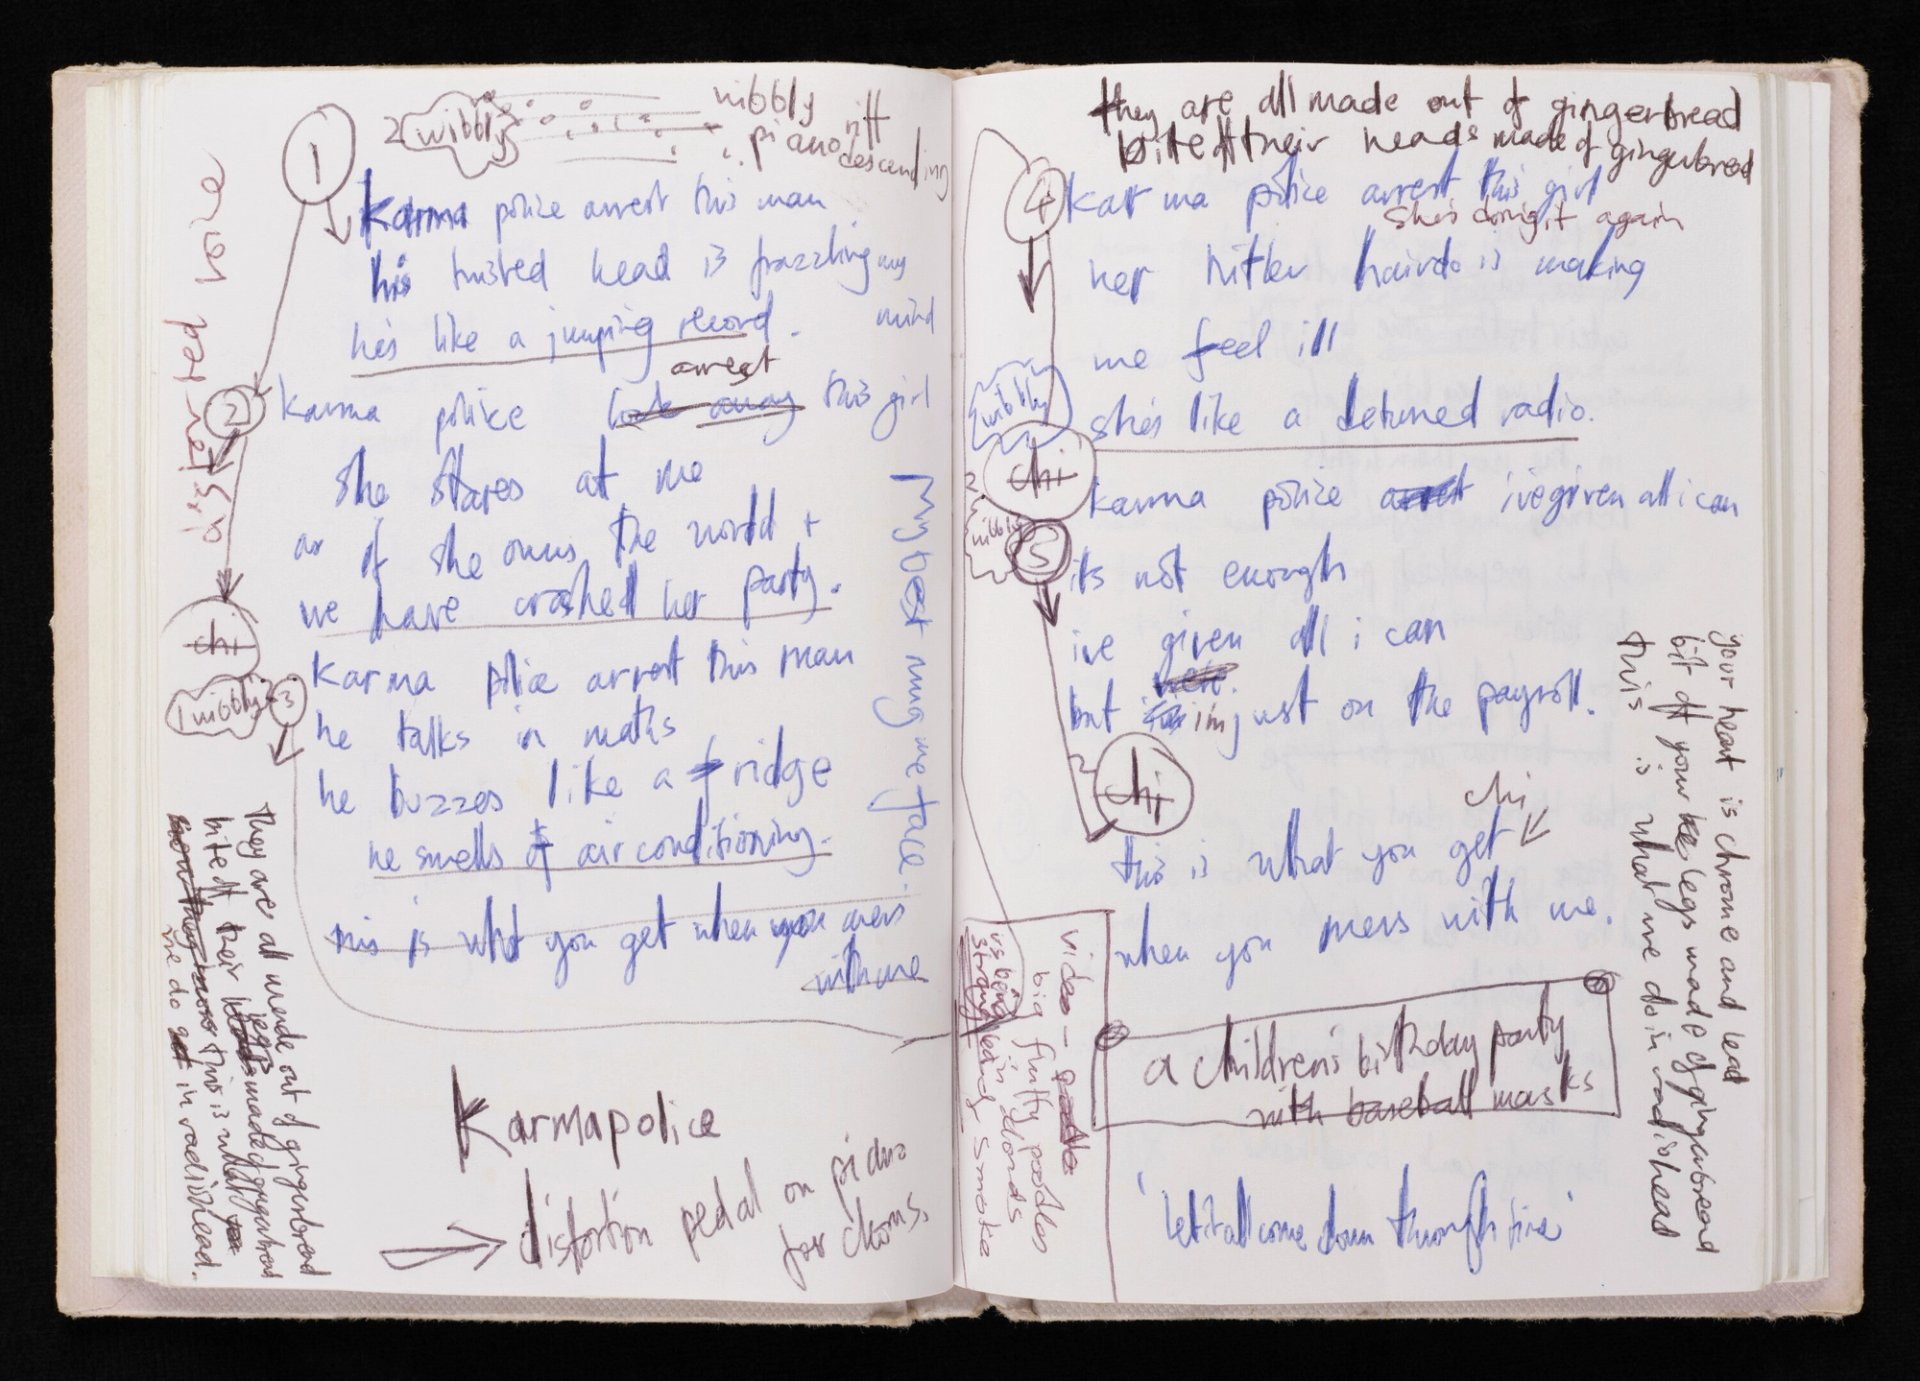 1
2 wibbly
wibbly
piano riff
descending
Karma police arrest this man
his twisted head is frazzling my
mind
he's like a jumping record.
arrest
2
karma police lock away this girl
she stares at me
as if she owns the world +
we have crashed her party.
chi
1 wibbly
3
Karma police arrest this man
he talks in maths
he buzzes like a fridge
he smells of air conditioning.
this is what you get when you mess
with me
Karmapolice
distortion pedal on piano
for chorus.
They are all made out of gingerbread
bite off their legs made of gingerbread
this is what
we do in radiohead.
they are all made out of gingerbread
bite off their heads made of gingerbread
4
karma police arrest this girl
she's doing it again
her hitler hairdo is making
me feel ill
wibbly
she's like a detuned radio.
chi
karma police arrest ive given all i can
2 wibbly
5
its not enough
ive given all i can
here.
but im just on the payroll.
chi
chi
this is what you get
when you mess with me.
video -
big fluffy poodles
in clouds
smoke
a children's birthday party
with baseball masks
'let it all come down through time'
your heart is chrome and lead
bit off your legs made of gingerbread
this is what we do in radiohead